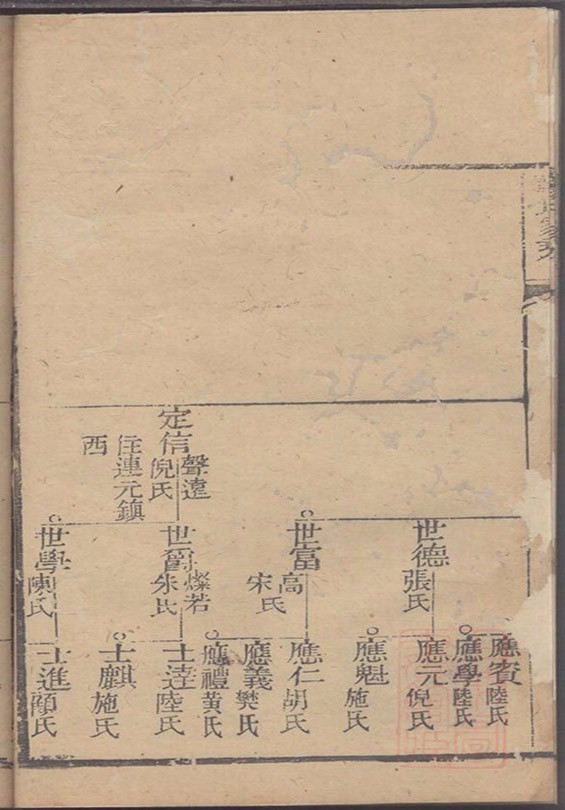 氏家乘
定信
聲遠
倪氏
住連元鎮
西
世德
張氏
世富
高
宋氏
世爵
燦若
朱氏
世學
陳氏
應賓
陸氏
應學
陸氏
應元
倪氏
應魁
施氏
應仁
胡氏
應義
樊氏
應禮
黃氏
士達
陸氏
士麒
施氏
士進
顧氏